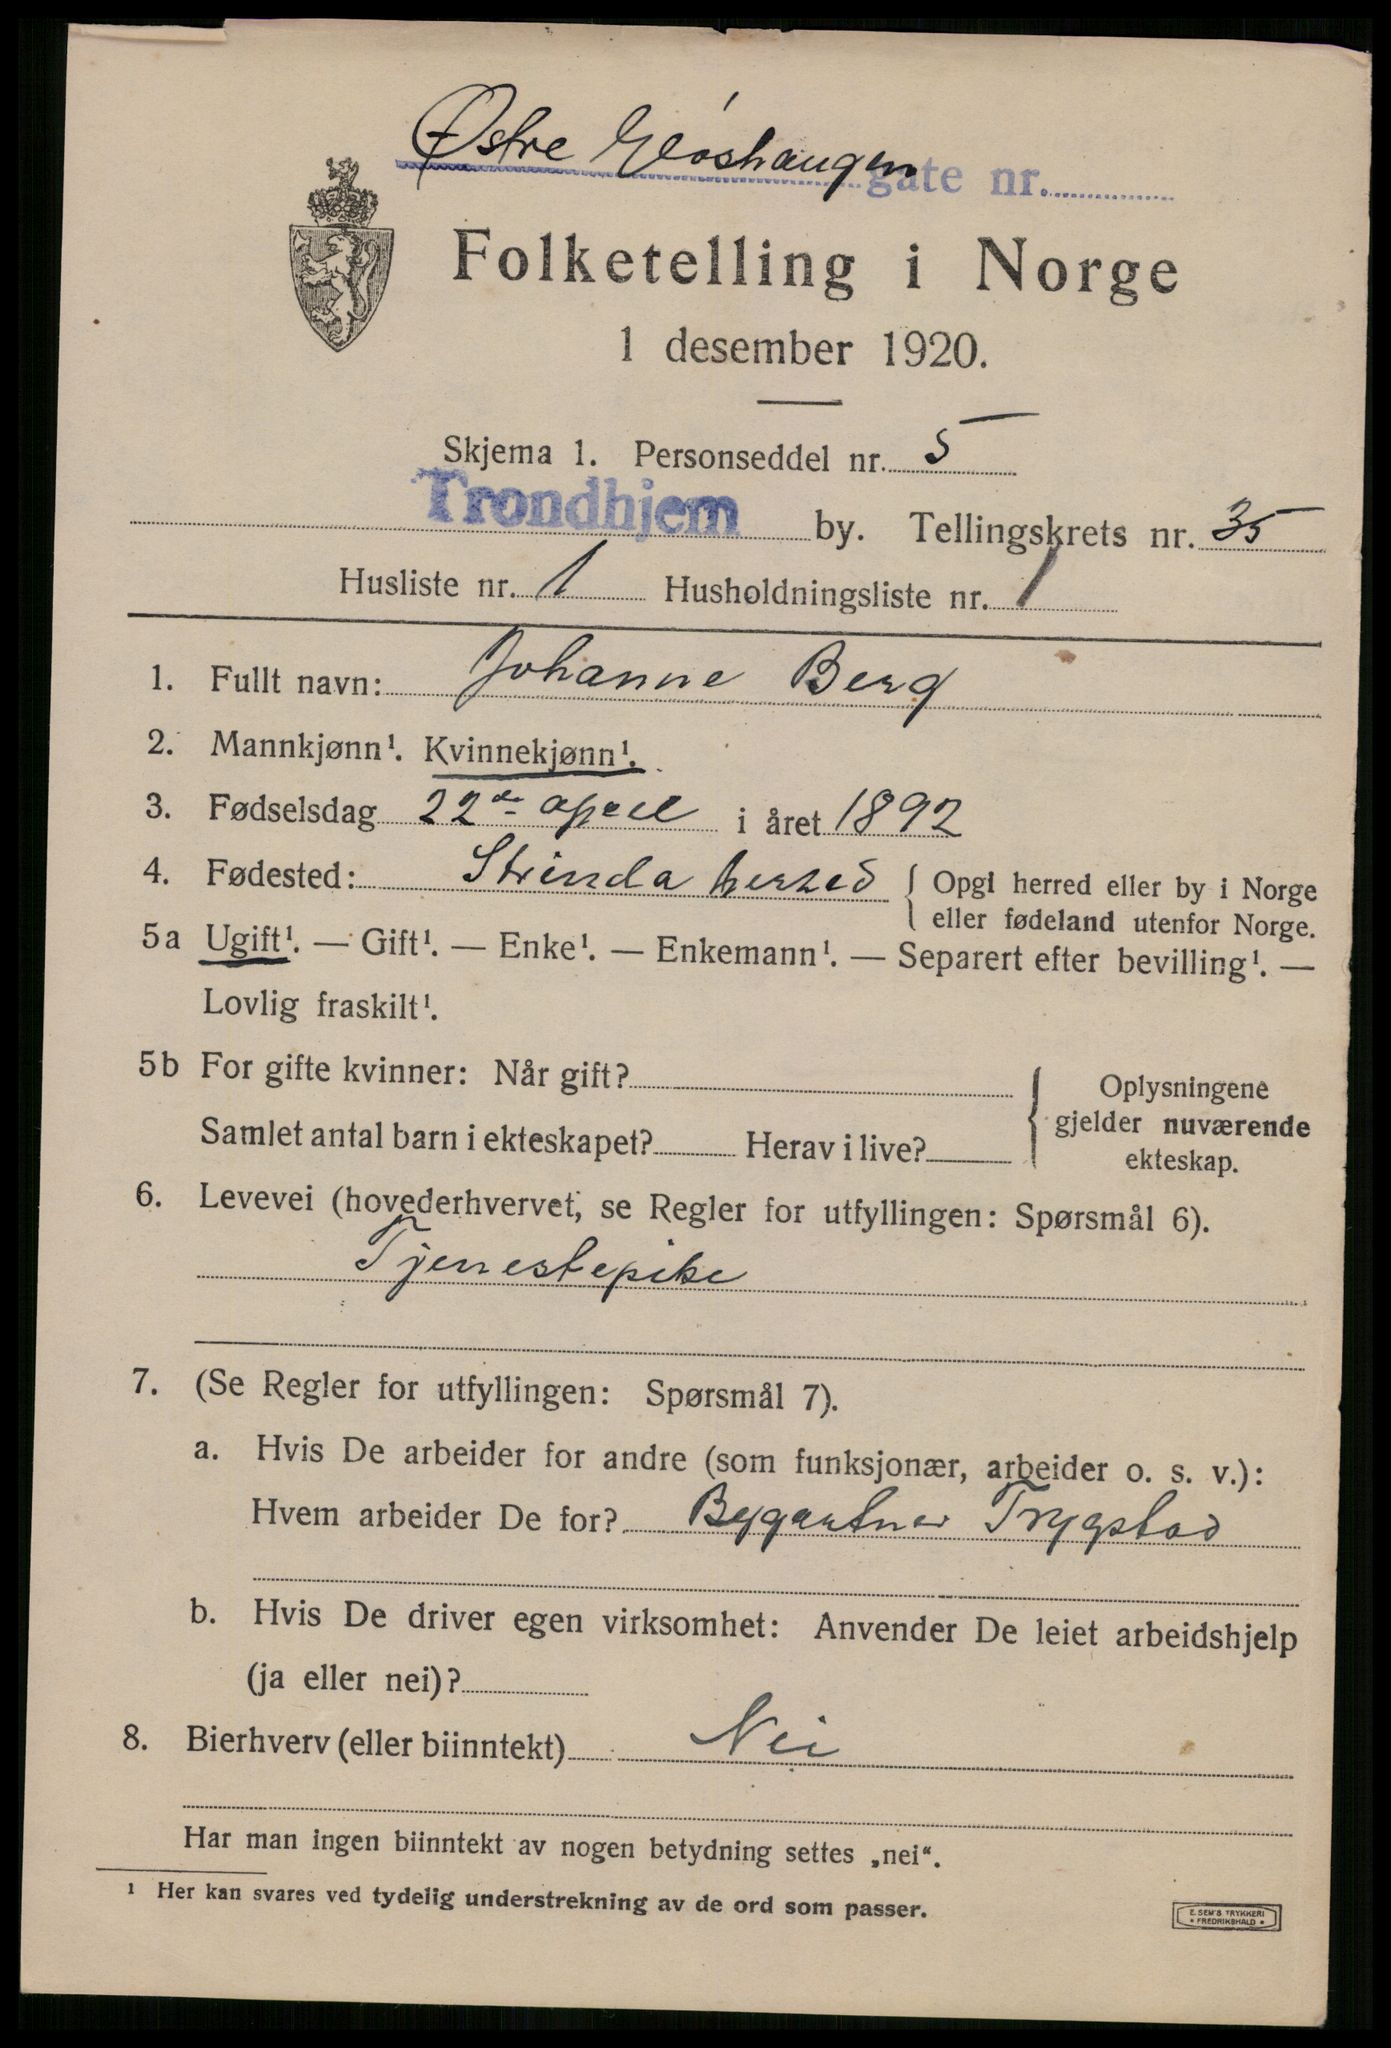 Østre Gløshaugen gate nr.
Folketelling i Norge
1 desember 1920.
Skjema 1. Personseddel nr. 5
Trondhjem by. Tellingskrets nr. 35
Husliste nr. 1 Husholdningsliste nr. 1
1. Fullt navn: Johanne Berg
2. Mannkjønn¹. Kvinnekjønn¹.
3. Fødselsdag 22de april i året 1892
4. Fødested: Strinda herred { Opgi herred eller by i Norge
eller fødeland utenfor Norge.
5a Ugift¹. — Gift¹. — Enke¹. — Enkemann¹. — Separert efter bevilling¹. —
Lovlig fraskilt¹.
5b For gifte kvinner: Når gift? Oplysningene
Samlet antal barn i ekteskapet? Herav i live? gjelder nuværende
ekteskap.
6. Levevei (hovederhvervet, se Regler for utfyllingen: Spørsmål 6).
Tjenestepike
7. (Se Regler for utfyllingen: Spørsmål 7).
a. Hvis De arbeider for andre (som funksjonær, arbeider o. s. v.):
Hvem arbeider De for? Bygartner Trygstad
b. Hvis De driver egen virksomhet: Anvender De leiet arbeidshjelp
(ja eller nei)?
8. Bierhverv (eller biinntekt) Nei
Har man ingen biinntekt av nogen betydning settes „nei“.
¹ Her kan svares ved tydelig understrekning av de ord som passer.
E. SEM'S TRYKKERI
• FREDRIKSHALD •